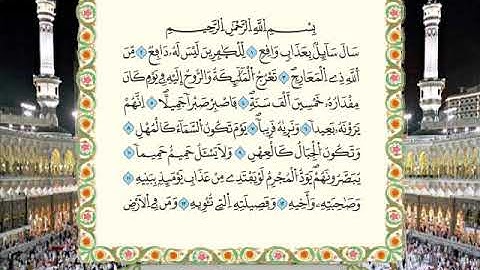 بِسْمِ اللَّهِ الرَّحْمَٰنِ الرَّحِيمِ
سَأَلَ سَآئِلٌۢ بِعَذَابٍ وَاقِعٍ ١ لِّلْكَٰفِرِينَ لَيْسَ لَهُۥ دَافِعٌ ٢ مِّنَ
اللَّهِ ذِي الْمَعَارِجِ ٣ تَعْرُجُ الْمَلَٰٓئِكَةُ وَالرُّوحُ إِلَيْهِ فِي يَوْمٍ كَانَ
مِقْدَارُهُۥ خَمْسِينَ أَلْفَ سَنَةٍ ٤ فَاصْبِرْ صَبْرًا جَمِيلًا ٥ إِنَّهُمْ
يَرَوْنَهُۥ بَعِيدًا ٦ وَنَرَىٰهُ قَرِيبًا ٧ يَوْمَ تَكُونُ السَّمَآءُ كَالْمُهْلِ ٨
وَتَكُونُ الْجِبَالُ كَالْعِهْنِ ٩ وَلَا يَسْـَٔلُ حَمِيمٌ حَمِيمًا ١٠
يُبَصَّرُونَهُمْ يَوَدُّ الْمُجْرِمُ لَوْ يَفْتَدِي مِنْ عَذَابِ يَوْمِئِذٍۭ بِبَنِيهِ ١١
وَصَٰحِبَتِهِۦ وَأَخِيهِ ١٢ وَفَصِيلَتِهِ الَّتِي تُـْٔوِيهِ ١٣ وَمَن فِي الْأَرْضِ